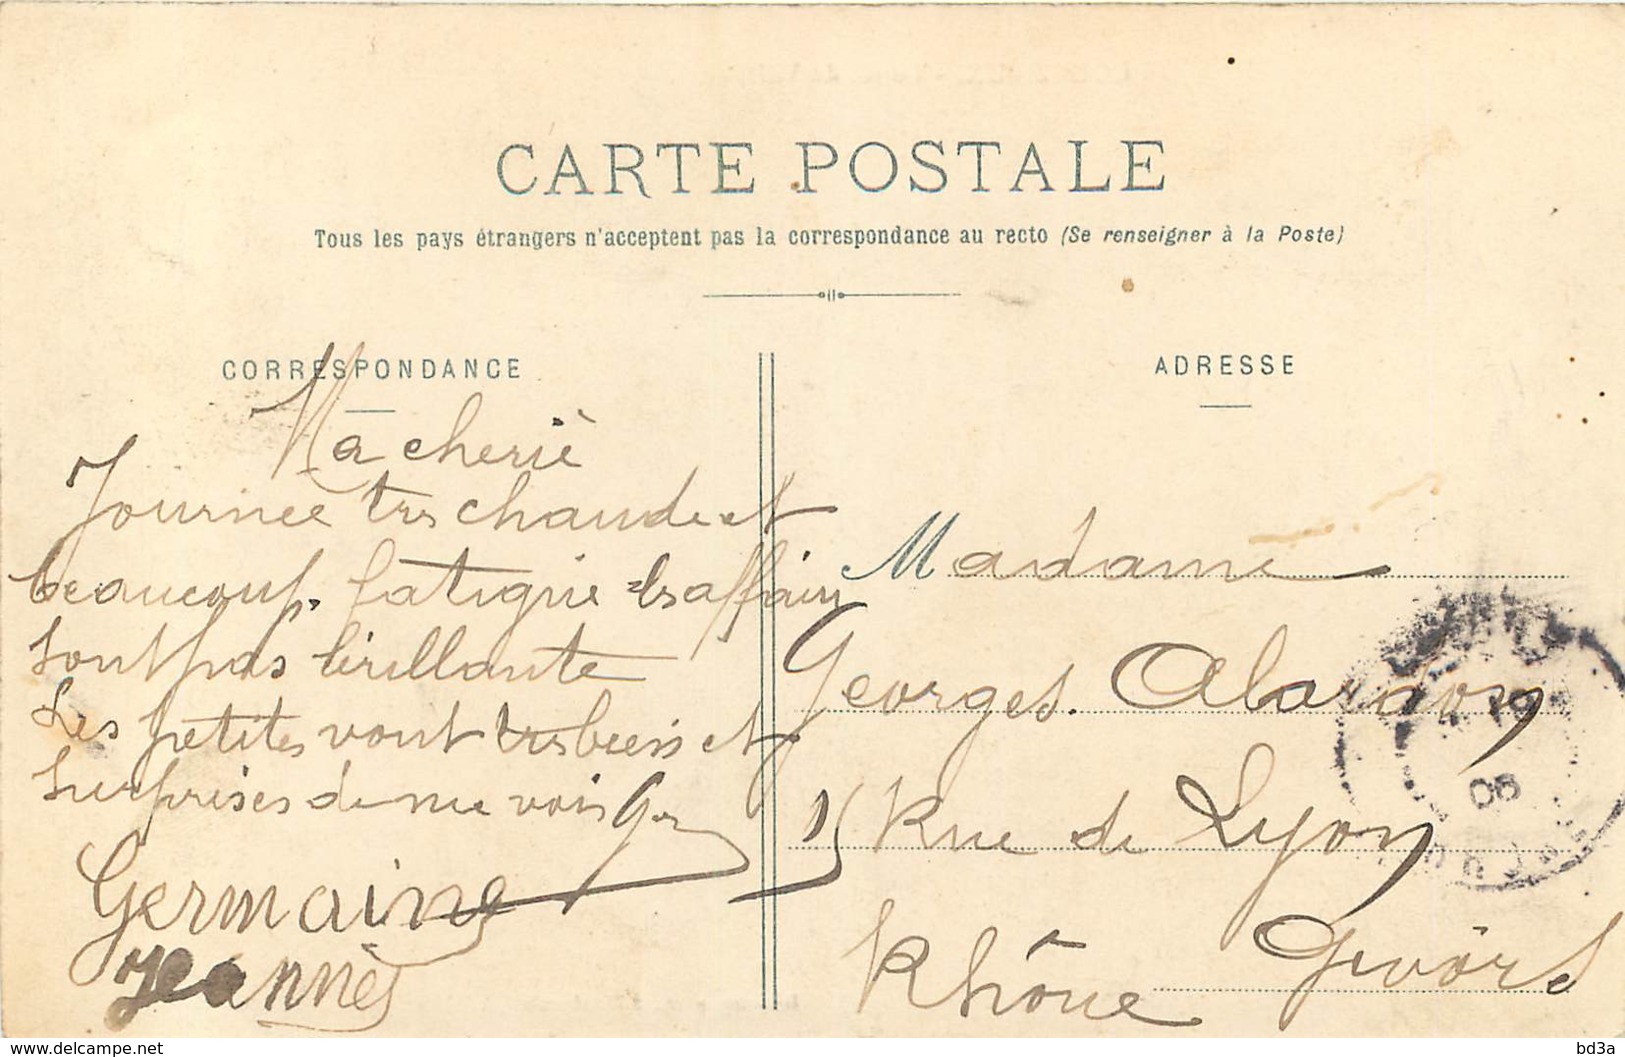 CARTE POSTALE
Tous les pays étrangers n'acceptent pas la correspondance au recto (Se renseigner à la Poste)
CORRESPONDANCE
ADRESSE
Ma cheriè
Journee tres chaude et
beaucoup fatigue les affair
sont pas brillante
Les petites vont tres bien et
surprises de me voir
Germaine
Jeannès
Madame
Georges Alardon
15 Rue de Lyon
Givors
Rhône
08
bd3a